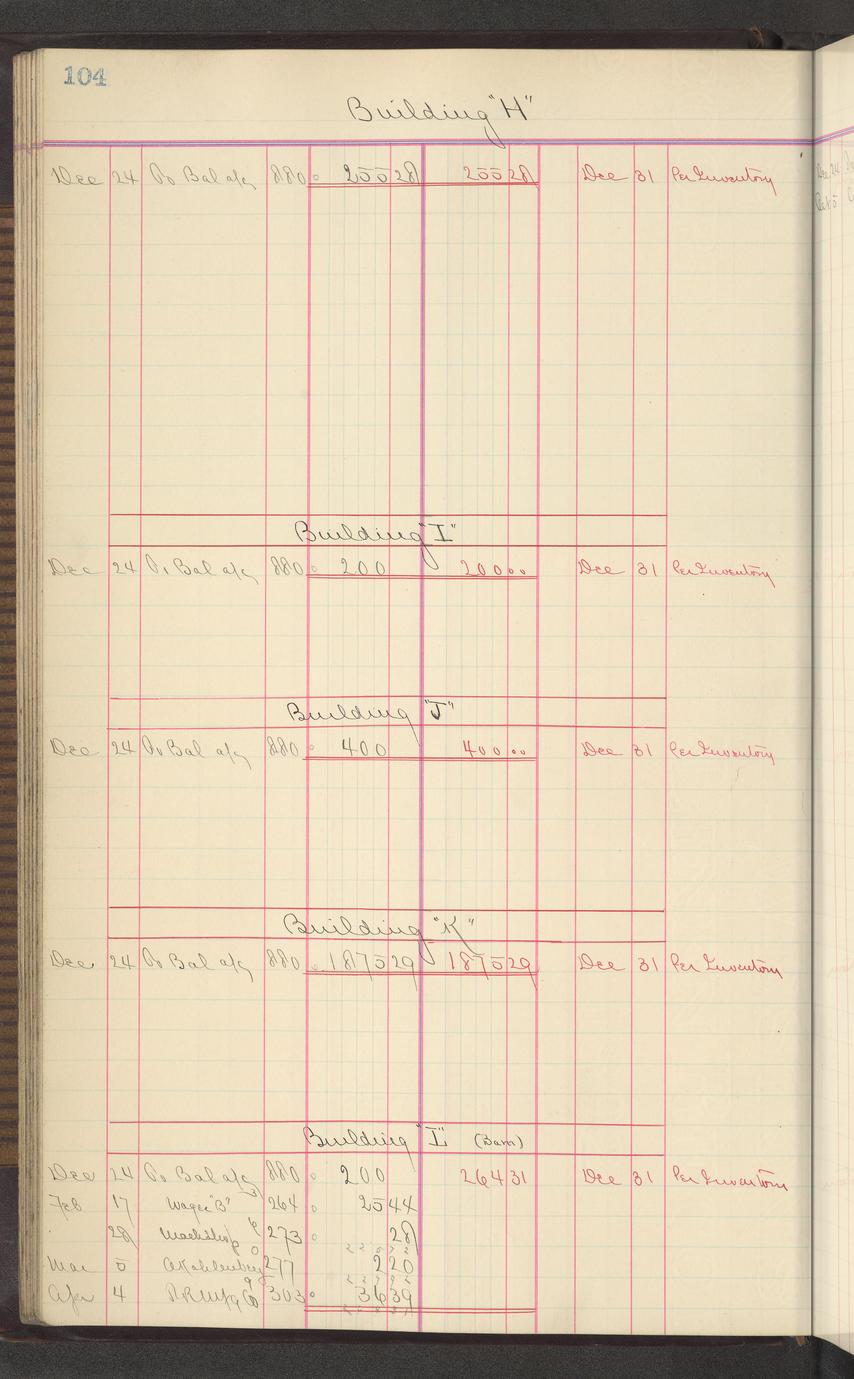 104
Building "H"
Dec 24 Bal a/c 880 255 28 255 28 Dec 31 Per Inventory
Building "I"
Dec 24 Bal a/c 880 200 200 00 Dec 31 Per Inventory
Building "J"
Dec 24 Bal a/c 880 400 400 00 Dec 31 Per Inventory
Building "K"
Dec 24 Bal a/c 880 1875 29 1875 29 Dec 31 Per Inventory
Building "L" (Barn)
Dec 24 Bal a/c 880 200 264 31 Dec 31 Per Inventory
Feb 17 Wages "B" 264 25 44
28 Machshop 273 28
Mar 5 A Kahlenberg 277 2 20
Apr 4 Mfg Co 303 36 39